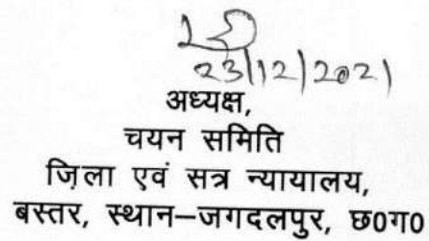 23/12/2021
अध्यक्ष,
चयन समिति
ज़िला एवं सत्र न्यायालय,
बस्तर, स्थान–जगदलपुर, छ0ग0